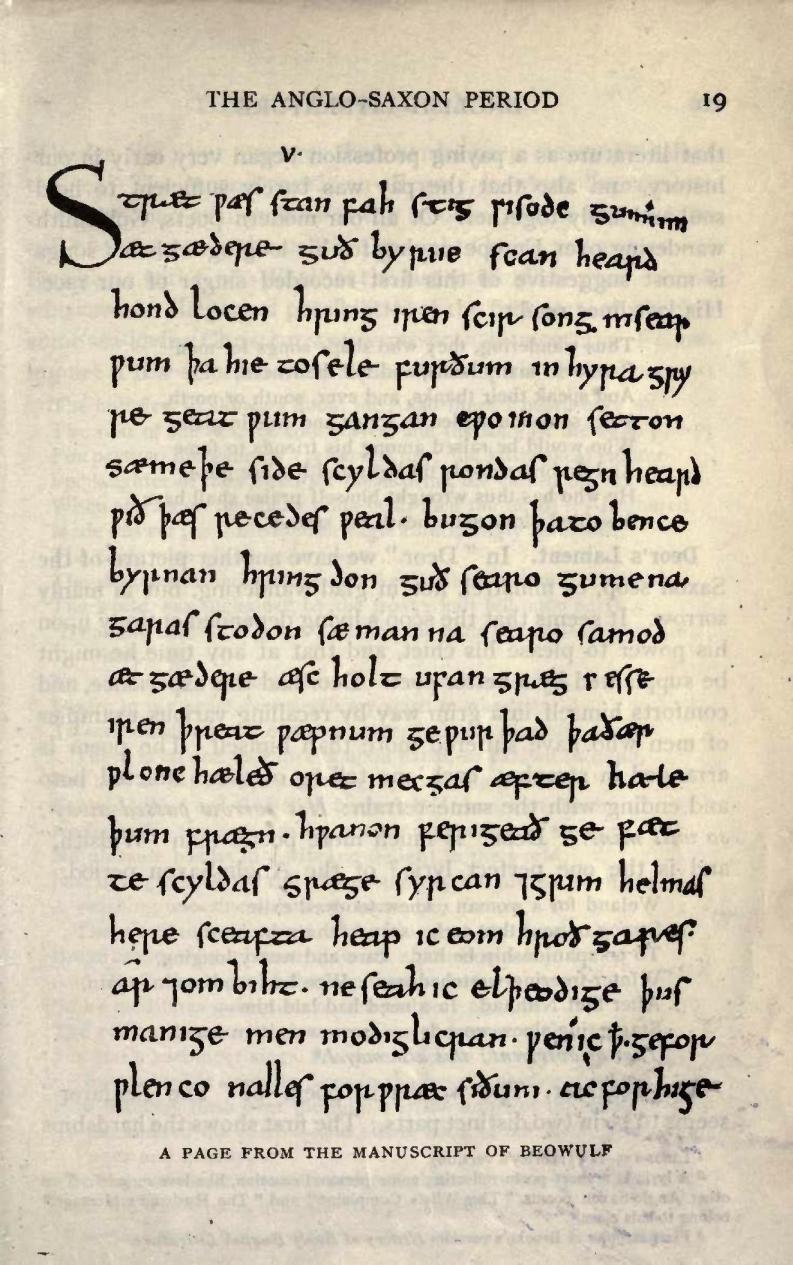 THE ANGLO-SAXON PERIOD 19
V·
Stræt pæs stan fah stig pisode gumum
æt gædere guð byrne scan heard
hond locen hring iren scir song in sear
pum þa hie to sele furðum in hyra gry
re geat pum gangan cpomon setton
sæmeþe side scyldas rondas regn heard
pið þæs recedes peal· bugon þa to bence
byrnan hring don guð searo gumena
garas stodon sæ man na searo samod
æt gædere æsc holt ufan græg
iren þreat pæpnum ge pur þad þa ðær
plonc hæleð oret mecgas æfter hæle
þum frægn· hpanon ferigeað ge fæt
te scyldas græge syrcan ⁊grim helmas
here sceafta heap ic eom hroð gares·
ār ⁊om biht· ne seah ic elþeodige þus
manige men modiglicran· pen'ic ꝥ·ge for
plen co nalles for præc siðum· ac for hige
A PAGE FROM THE MANUSCRIPT OF BEOWULF